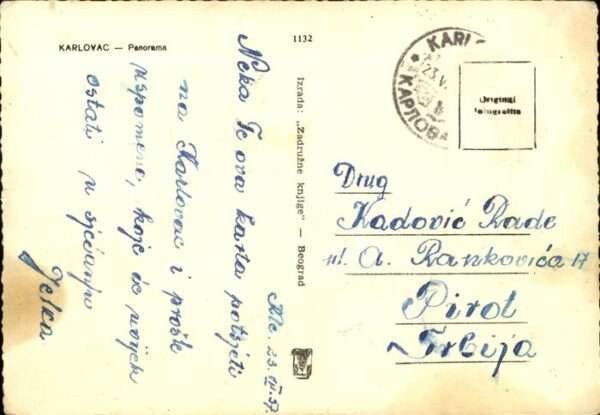 KARLOVAC — Panorama
1132
Neka Te ova karta potsjeti
na Karlovac i prošle
uspomene, koje će uvijek
ostati u sjećanju
Jelka
Klc. 23. 57.
Izrada: „Zadružne knjige" — Beograd
KARL
23.V.
КАРЛОВА
Original
fotografija
Drug
Radović Rade
ul. A. Rankovića 17
Pirot
Srbija